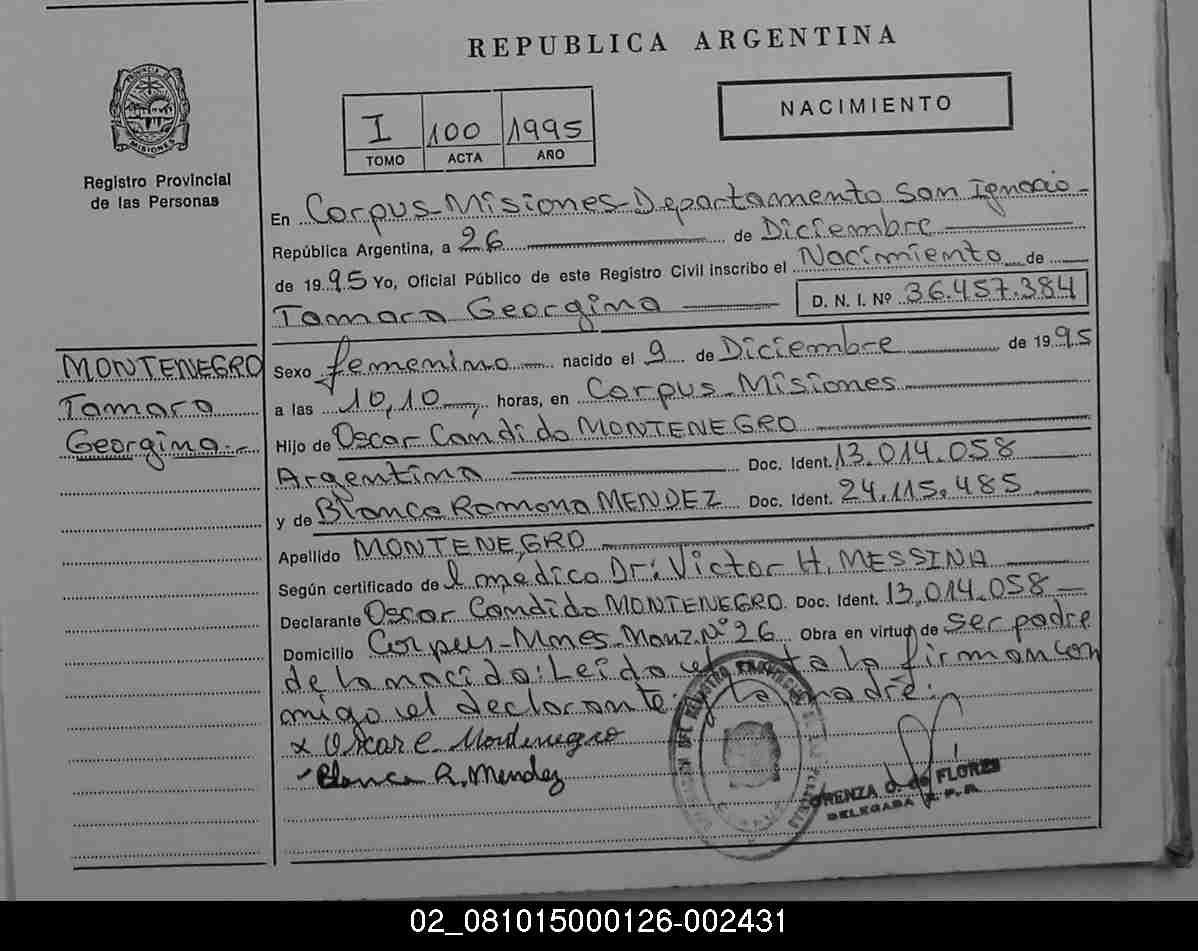 REPUBLICA ARGENTINA
PROVINCIA DE
MISIONES
Registro Provincial
de las Personas
I 100 1995
TOMO ACTA AÑO
NACIMIENTO
En Corpus-Misiones-Departamento San Ignacio-
República Argentina, a 26 de Diciembre
de 1995 Yo, Oficial Público de este Registro Civil inscribo el Nacimiento de
Tamara Georgina D. N. I. Nº 36.457.384
MONTENEGRO
Tamara
Georgina.-
Sexo femenino nacido el 9 de Diciembre de 1995
a las 10,10 horas, en Corpus-Misiones
Hijo de Oscar Candido MONTENEGRO
Argentina Doc. Ident. 13.014.058
y de Blanca Ramona MENDEZ Doc. Ident. 24.115.485
Apellido MONTENEGRO
Según certificado del médico Dr: Victor H. MESSINA
Declarante Oscar Candido MONTENEGRO. Doc. Ident. 13.014.058-
Domicilio Corpus-Mnes-Manz.Nº 26 Obra en virtud de ser padre
de la nacida: Leída el acta la firman con
migo el declarante y la madre.
x Oscar C Montenegro
Blanca R. Mendez
DEL REGISTRO PROVINCIAL DE LAS PERSONAS
LORENZA O. de FLORES
DELEGADA R. P. P.
02_081015000126-002431